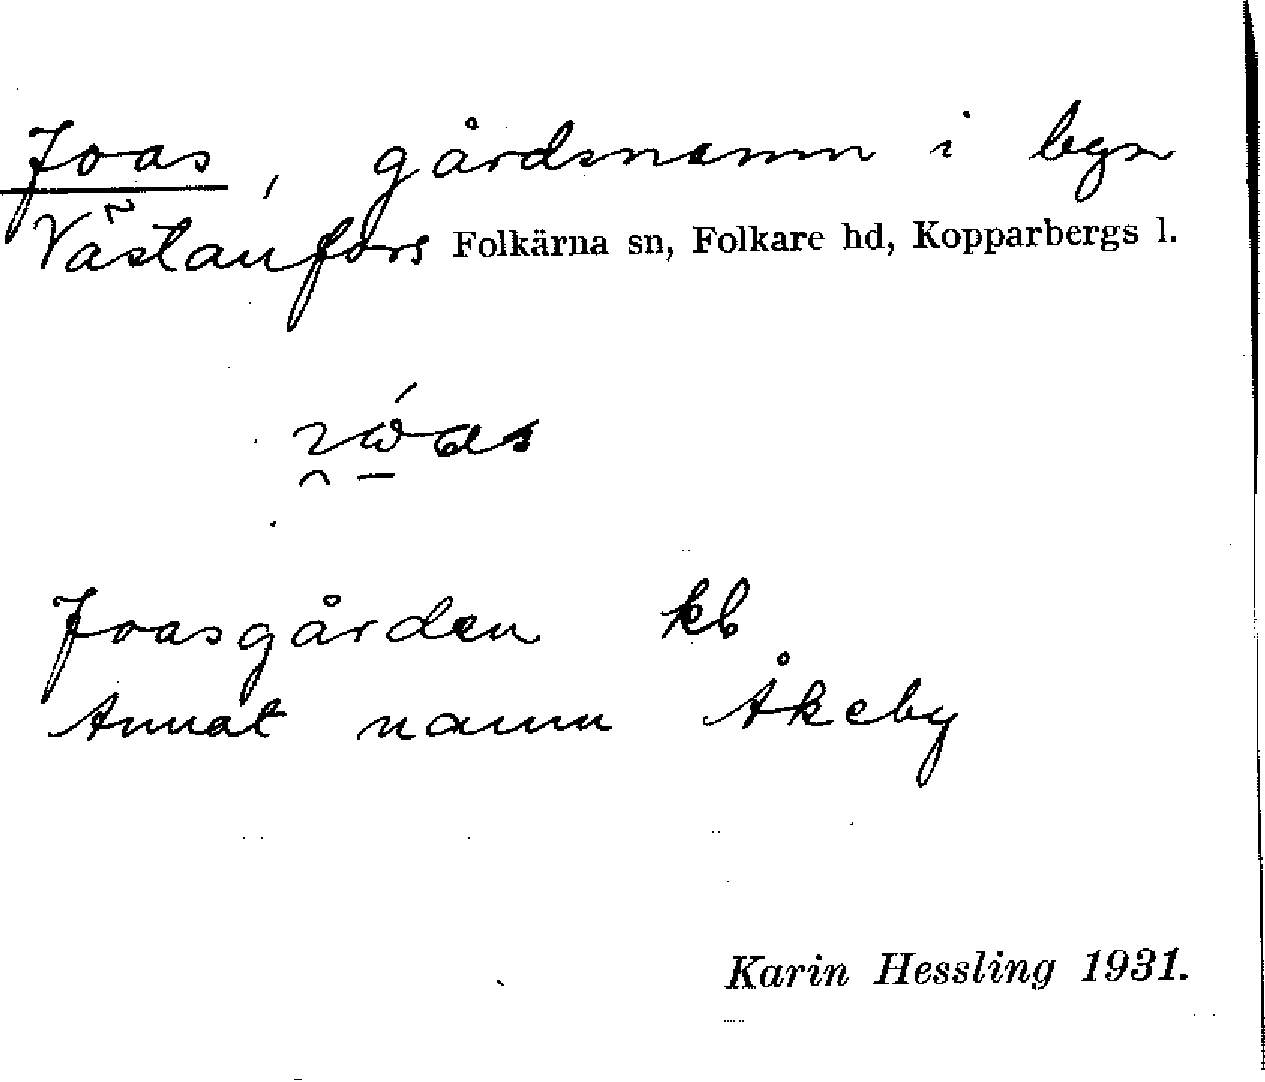 Joas, gårdsnamn i byn
Västanfors Folkärna sn, Folkare hd, Kopparbergs l.
Joasgården kb
Annat namn Åkeby
Karin Hessling 1931.